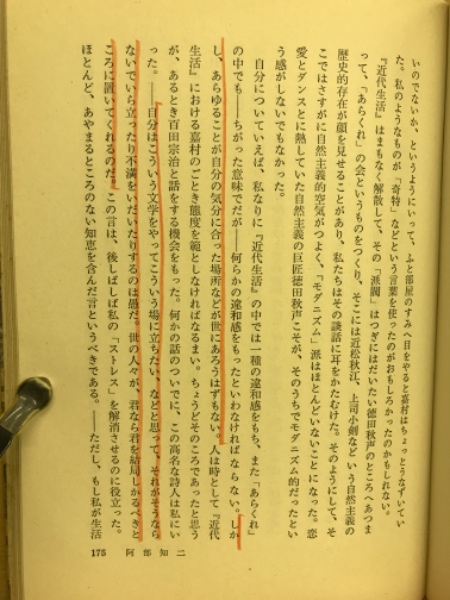 いのでないか、というようにいって、ふと部屋のすみへ目をやると嘉村はちょっとうなずいてい
た。私のようなものが「奇特」などという言葉を使ったのがおもしろかったのかもしれない。
『近代生活』はまもなく解散して、その「派閥」はつぎにはだいたい徳田秋声のところへあつま
って、「あらくれ」の会というものをつくり、そこには近松秋江、上司小剣などいう自然主義の
歴史的存在が顔を見せることがあり、私たちはその談話に耳をかたむけた。そのようにして、そ
こではさすがに自然主義的空気がつよく、「モダニズム」派はほとんどいないことになった。恋
愛とダンスとに熱していた自然主義の巨匠徳田秋声こそが、そのうちでモダニズム的だったとい
う感がしないでもなかった。
自分についていえば、私なりに『近代生活』の中では一種の違和感をもち、また「あらくれ」
の中でも――ちがった意味でだが――何らかの違和感をもったといわなければならない。しか
し、あらゆることが自分の気分に合った場所などが世にあろうはずもない。人は時として『近代
生活』における嘉村のごとき態度を範としなければなるまい。ちょうどそのころであったと思う
が、あるとき百田宗治と話をする機会をもった。何かの話のついでに、この高名な詩人は私にい
った。――自分はこういう文学をやってこういう場に立ちたい、などと思って、それがそうなら
ないでいら立ったり不満をいだいたりするのは愚だ。世の人々が、君なら君を結局しかるべきと
ころに置いてくれるのだ。この言は、後しばしば私の「ストレス」を解消させるのに役立った。
ほとんど、あやまるところのない知恵を含んだ言というべきである。――ただし、もし私が生活
175 阿部知二